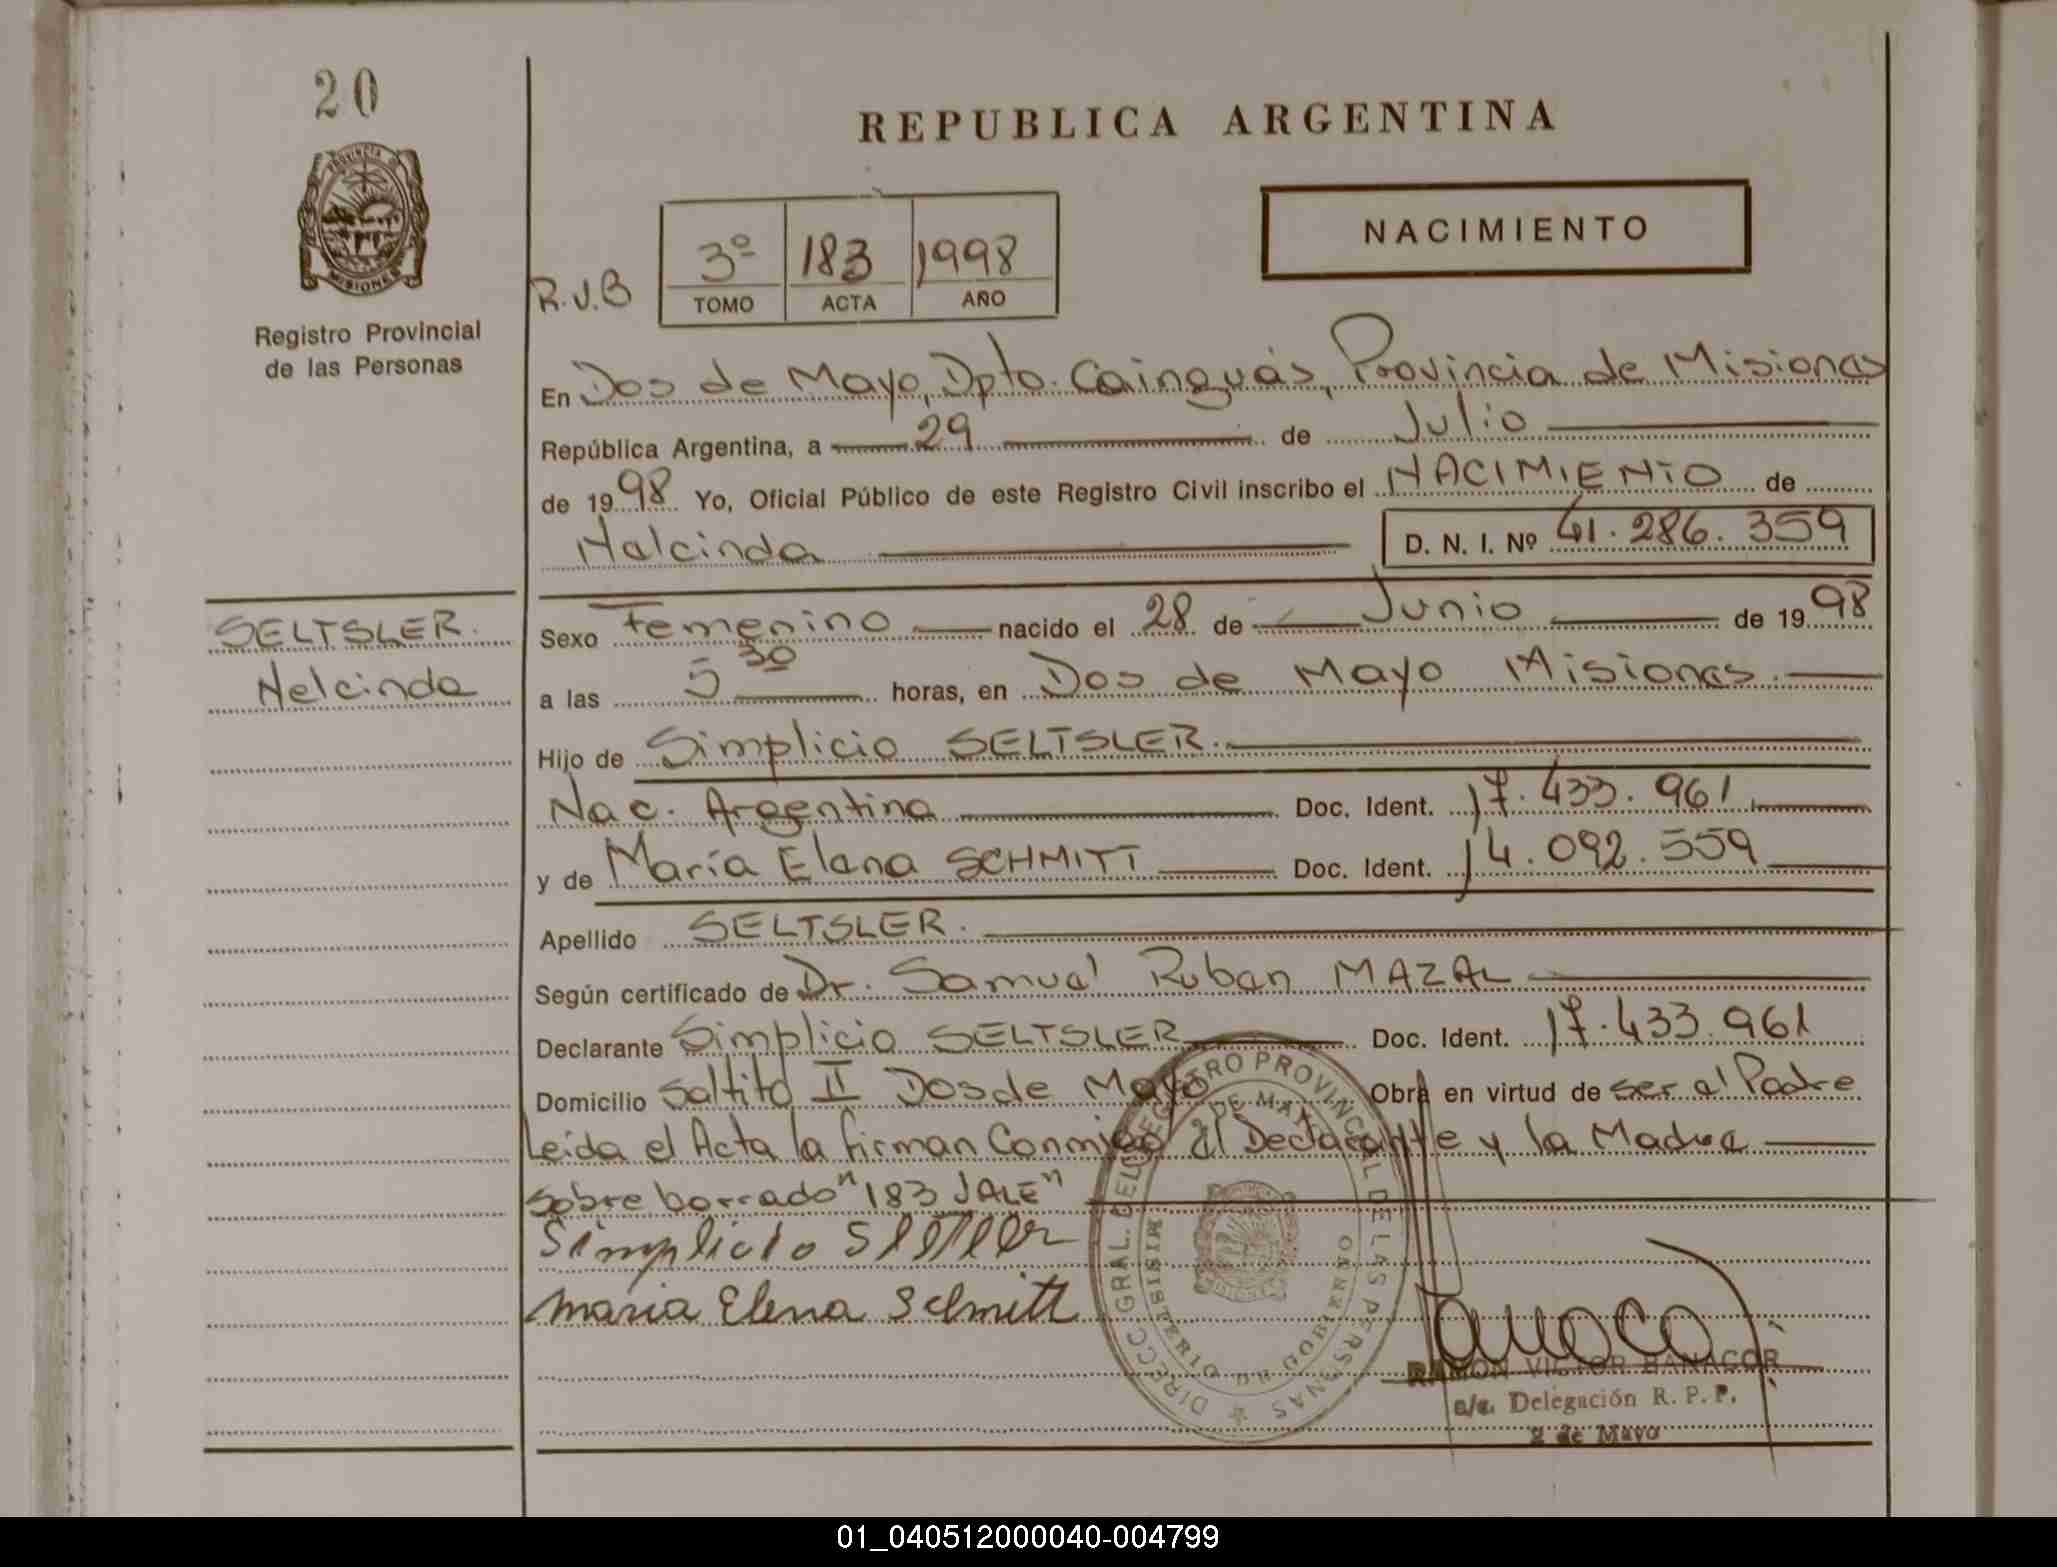 20
REPUBLICA ARGENTINA
PROVINCIA DE
MISIONES
Registro Provincial
de las Personas
NACIMIENTO
R.V.B
3º 183 1998
TOMO ACTA AÑO
En Dos de Mayo, Dpto. Cainguás, Provincia de Misiones
República Argentina, a 29 de Julio
de 1998 Yo, Oficial Público de este Registro Civil inscribo el NACIMIENTO de
Nalcinda D. N. I. Nº 41.286.359
SELTSLER.
Nelcinda
Sexo Femenino nacido el 28 de Junio de 1998
a las 5 30 horas, en Dos de Mayo Misiones.
Hijo de Simplicio SELTSLER.
Nac. Argentina Doc. Ident. 17.433.961
y de María Elena SCHMITT Doc. Ident. 14.092.559
Apellido SELTSLER.
Según certificado de Dr. Samuel Ruben MAZAL
Declarante Simplicio SELTSLER Doc. Ident. 17.433.961
Domicilio Saltito II Dos de Mayo Obra en virtud de ser el Padre
Leida el Acta la firman Conmigo El Declarante y la Madre
sobre borrado "183 VALE"
Simplicio Seltsler
Maria Elena Schmitt
DIRECC. GRAL. DEL REGISTRO PROVINCIAL DE LAS PERSONAS
MINISTERIO DE GOBIERNO
DE MAYO
RAMON VICTOR BANACOR
a/c. Delegación R. P. P.
2 de Mayo
01_040512000040-004799